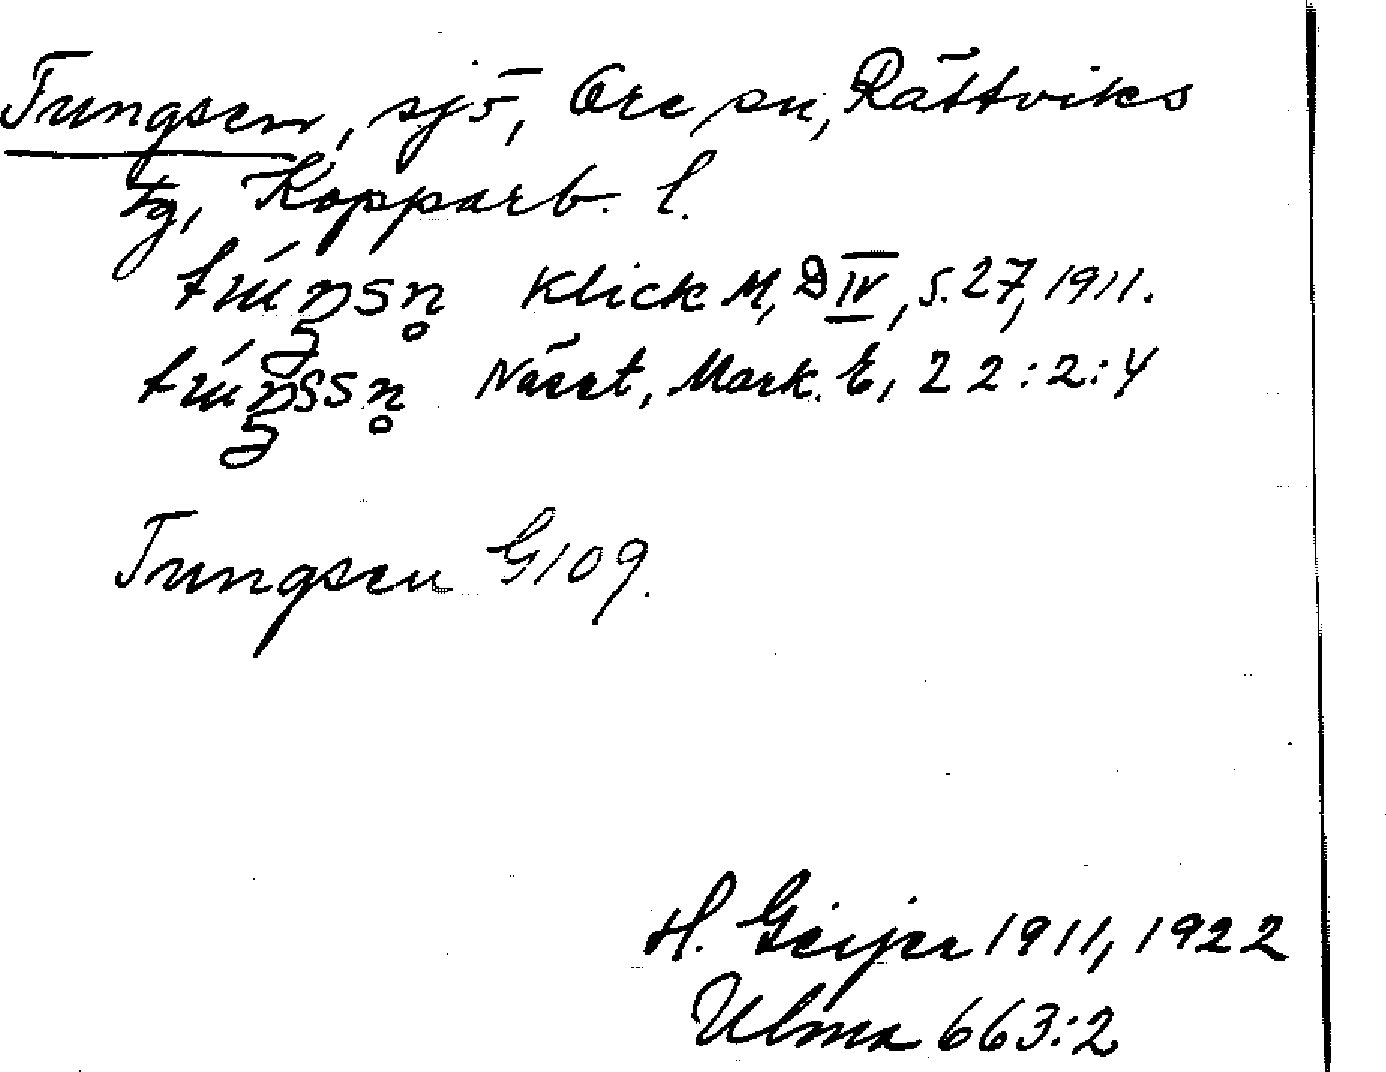 Trungsen, sjö, Ore sn, Rättviks
tg, Kopparb. l.
Klick M, D IV, s. 27, 1911.
Näset, Mark. E, 22:2:4
Trungsen G109.
H. Geijer 1911, 1922
Ulma 663:2